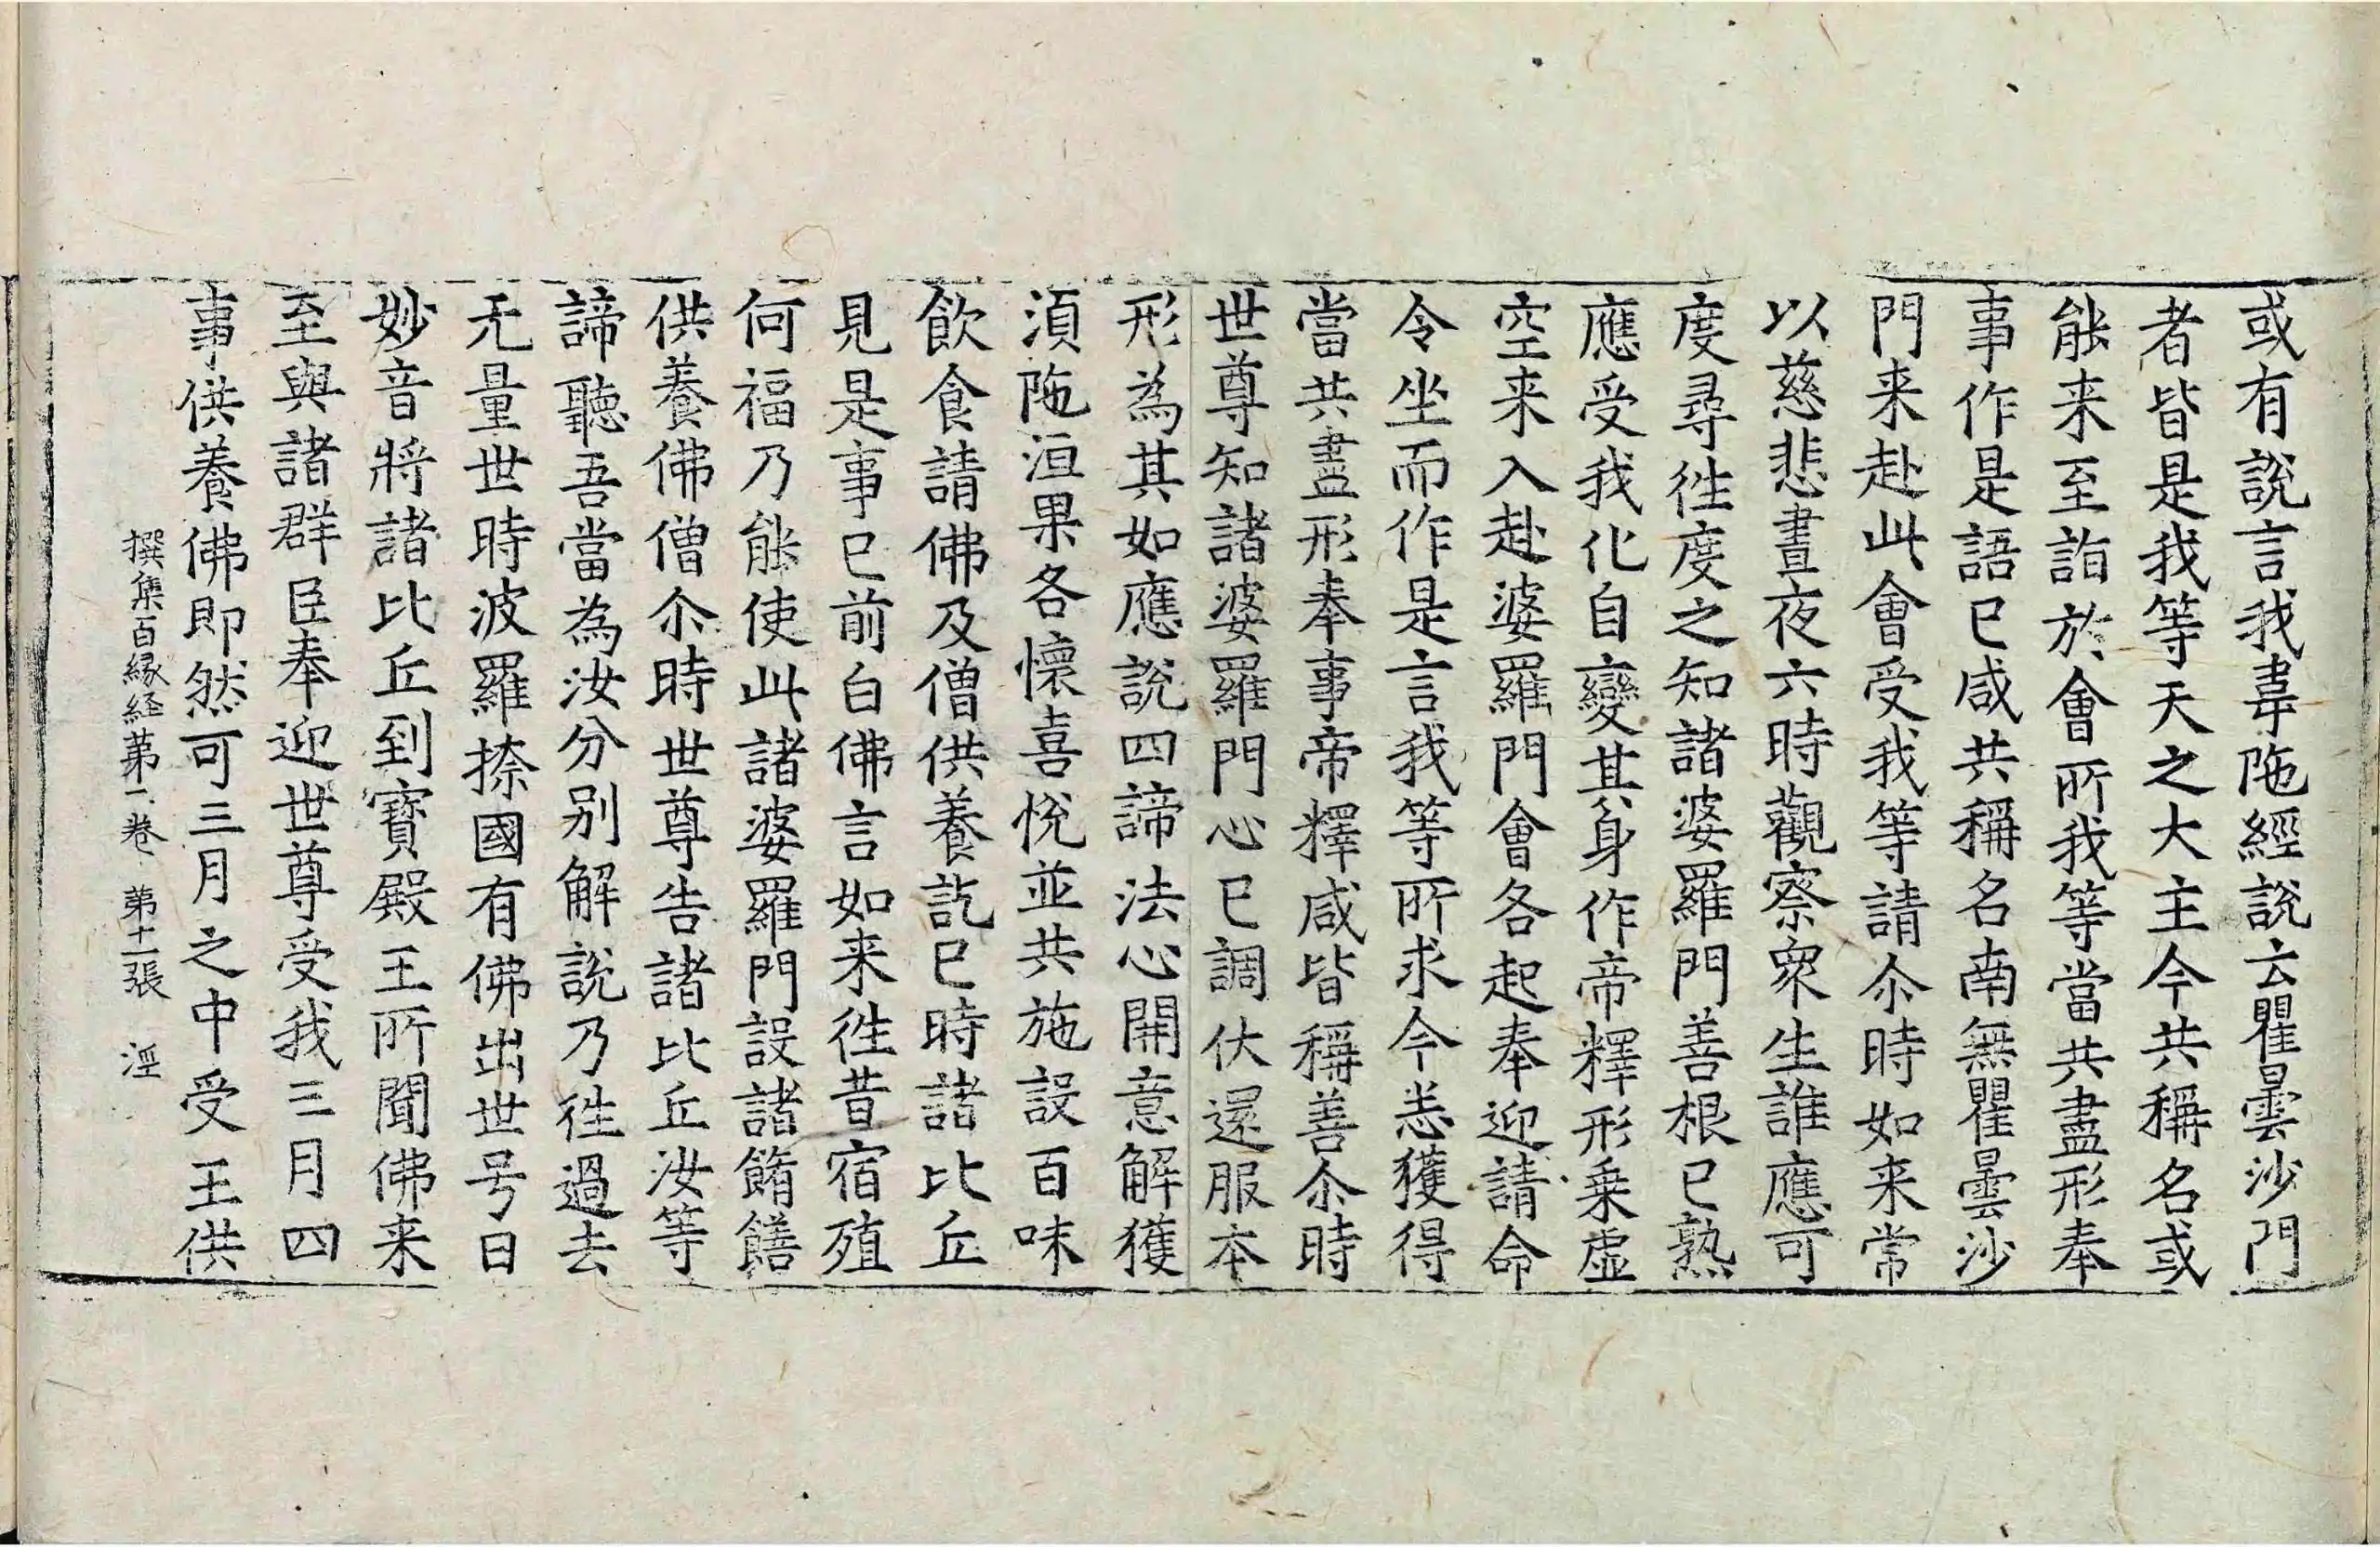 或有說言我韋陁經說云瞿曇沙門
者皆是我等天之大主今共稱名或
能来至詣於會所我等當共盡形奉
事作是語已咸共稱名南無瞿曇沙
門来赴此會受我等請尒時如来常
以慈悲晝夜六時觀察衆生誰應可
度尋徃度之知諸婆羅門善根已熟
應受我化自變其身作帝釋形乗虛
空来入赴婆羅門會各起奉迎請命
令坐而作是言我等所求今恙獲得
當共盡形奉事帝釋咸皆稱善尒時
世尊知諸婆羅門心已調伏還服本
形為其如應說四諦法心開意解獲
湏陁洹果各懷喜悅並共施設百味
飲食請佛及僧供養訖已時諸比丘
見是事已前白佛言如来徃昔宿殖
何福乃能使此諸婆羅門設諸餚饍
供養佛僧尒時世尊告諸比丘汝等
諦聽吾當為汝分别解說乃徃過去
无量世時波羅㮈國有佛出世号曰
妙音將諸比丘到寶殿王所聞佛来
至與諸群臣奉迎世尊受我三月四
事供養佛即然可三月之中受王供
撰集百緣経苐二卷 苐十二張 涇